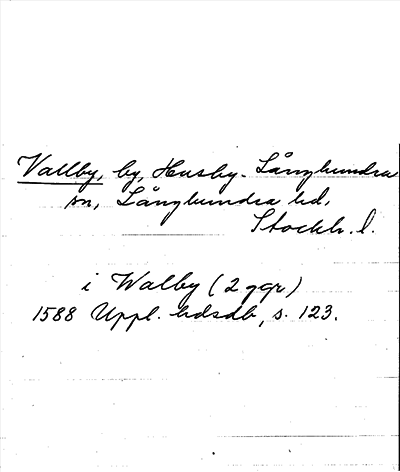 Vallby, by, Husby-Långhundra
sn, Långhundra hd,
Stockh. l.
i Walby (2 ggr)
1588 Uppl. hdsdb, s. 123.